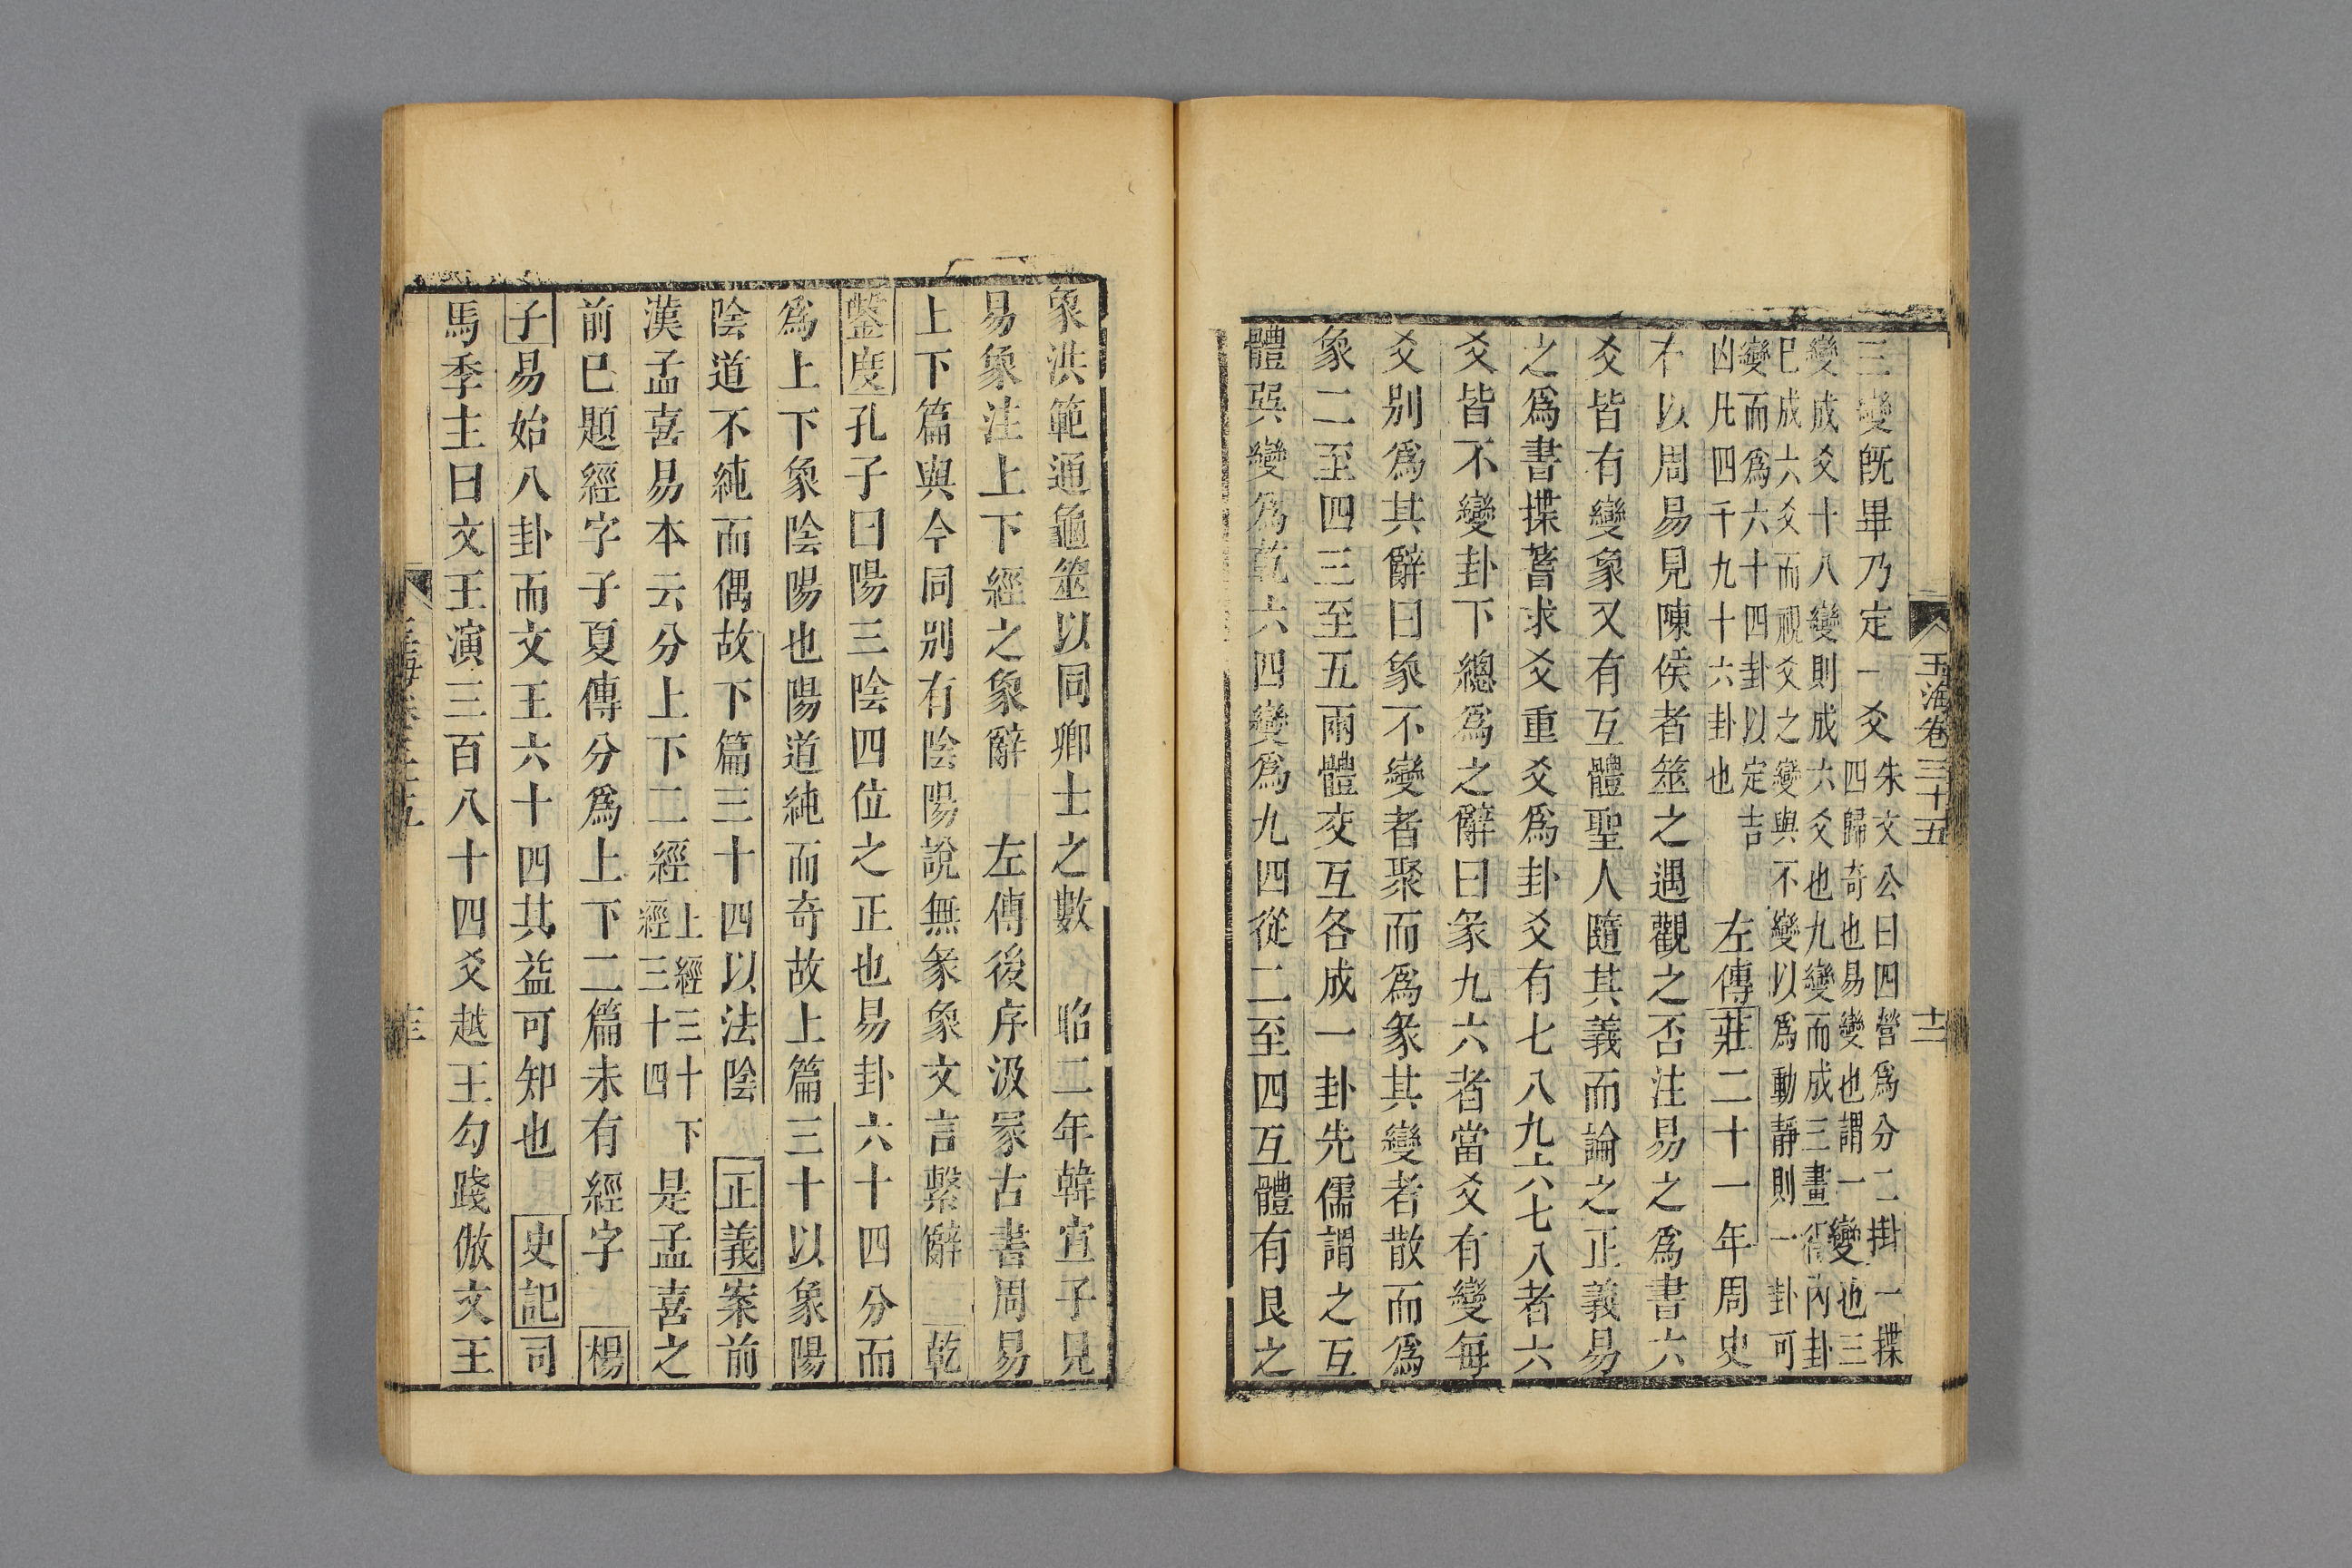 玉海卷三十五　十二
三變旣畢乃定一爻朱文公曰四營爲分二掛一揲
四歸奇也易變也謂一變也三
變成爻十八變則成六爻也九變而成三畫得內卦
已成六爻而視爻之變與不變以爲動靜則一卦可
變而爲六十四卦以定吉
凶凡四千九十六卦也　左傳莊二十一年周史
不以周易見陳侯者筮之遇觀之否注易之爲書六
爻皆有變象又有互體聖人隨其義而論之正義易
之爲書揲蓍求爻重爻爲卦爻有七八九六七八者六
爻皆不變卦下總爲之辭曰彖九六者當爻有變每
爻別爲其辭曰象不變者聚而爲彖其變者散而爲
象二至四三至五兩體交互各成一卦先儒謂之互
體巽變爲乾六四變爲九四從二至四互體有艮之
象洪範通龜筮以同卿士之數　昭二年韓宣子見
易象注上下經之象辭　左傳後序汲冢古書周易
上下篇與今同別有陰陽說無彖象文言繫辭　乾
鑿度孔子曰陽三陰四位之正也易卦六十四分而
爲上下象陰陽也陽道純而奇故上篇三十以象陽
陰道不純而偶故下篇三十四以法陰　正義案前
漢孟喜易本云分上下二經上經三十下
經三十四是孟喜之
前已題經字子夏傳分爲上下二篇未有經字　楊
子易始八卦而文王六十四其益可知也　史記司
馬季主曰文王演三百八十四爻越王勾踐倣文王